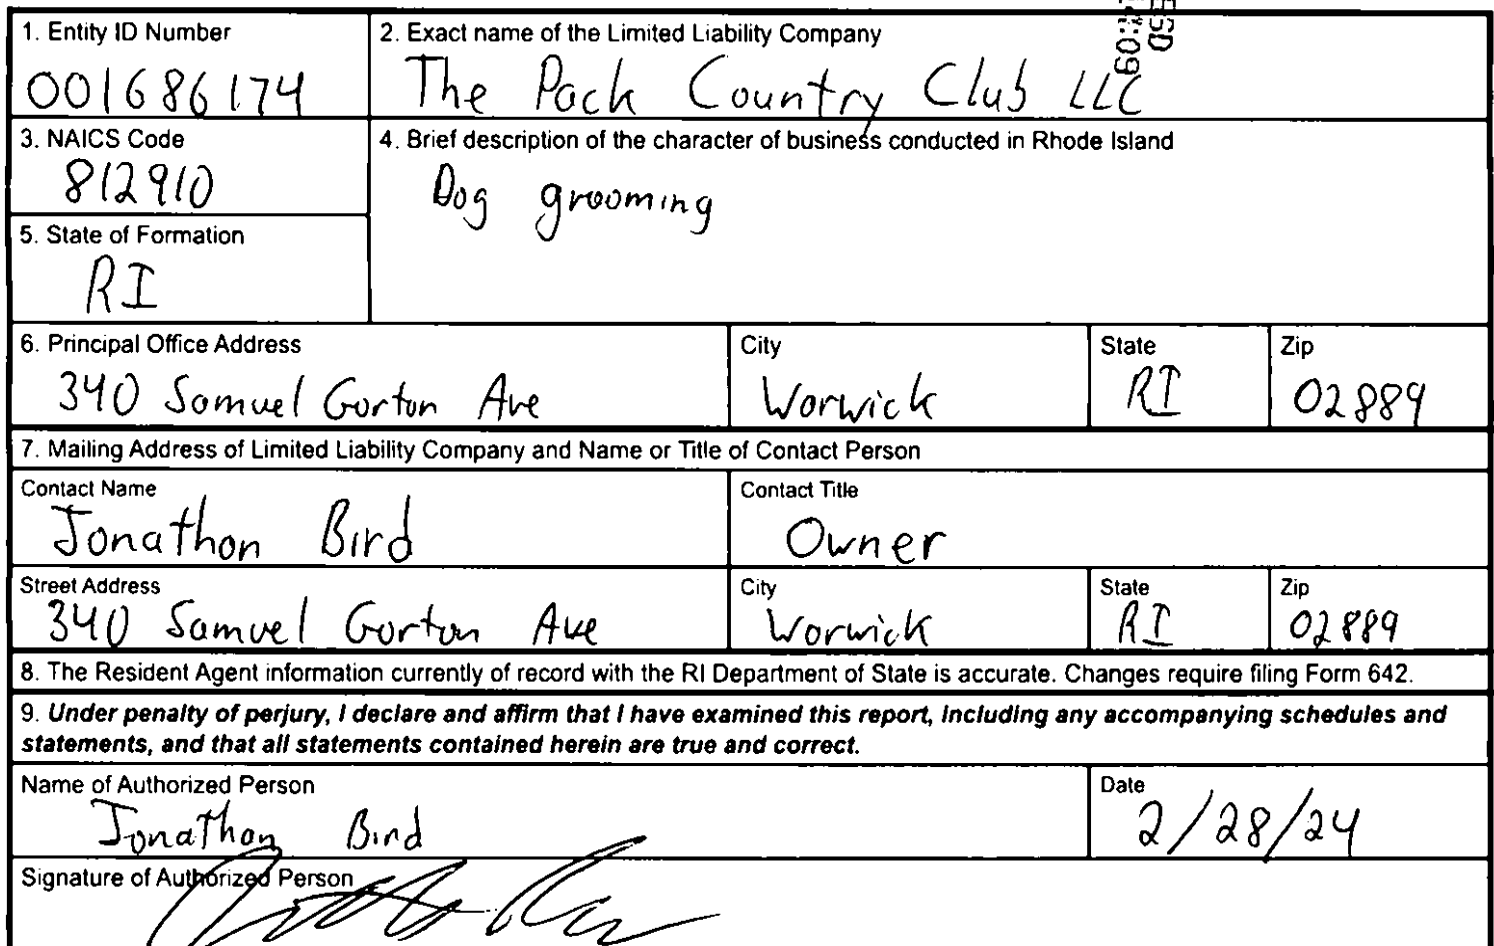 1. Entity ID Number
001686174
2. Exact name of the Limited Liability Company
The Pack Country Club LLC
3. NAICS Code
812910
4. Brief description of the character of business conducted in Rhode Island
Dog grooming
5. State of Formation
RI
6. Principal Office Address
340 Samuel Gorton Ave
City
Warwick
State
RI
Zip
02889
7. Mailing Address of Limited Liability Company and Name or Title of Contact Person
Contact Name
Jonathon Bird
Contact Title
Owner
Street Address
340 Samuel Gorton Ave
City
Warwick
State
RI
Zip
02889
8. The Resident Agent information currently of record with the RI Department of State is accurate. Changes require filing Form 642.
9. Under penalty of perjury, I declare and affirm that I have examined this report, including any accompanying schedules and
statements, and that all statements contained herein are true and correct.
Name of Authorized Person
Jonathon Bird
Date
2/28/24
Signature of Authorized Person